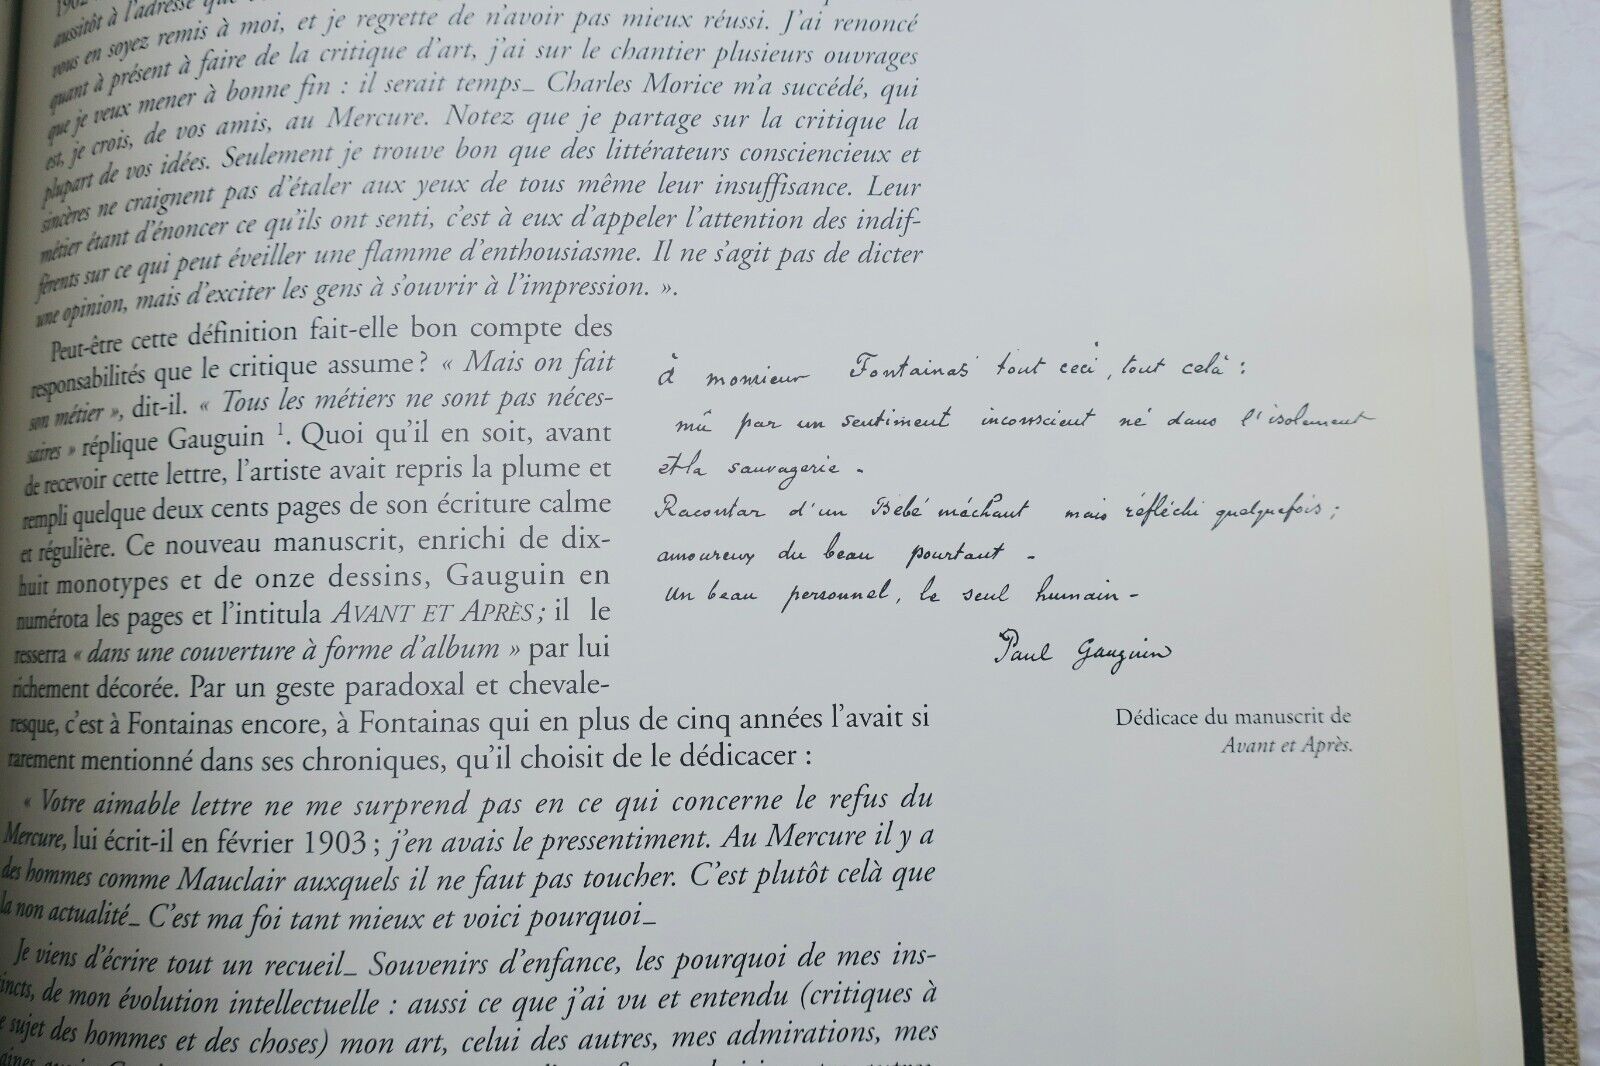 1902
aussitôt à l'adresse que
vous en soyez remis à moi, et je regrette de n'avoir pas mieux réussi. J'ai renoncé
quant à présent à faire de la critique d'art, j'ai sur le chantier plusieurs ouvrages
que je veux mener à bonne fin : il serait temps_ Charles Morice m'a succédé, qui
est, je crois, de vos amis, au Mercure. Notez que je partage sur la critique la
plupart de vos idées. Seulement je trouve bon que des littérateurs consciencieux et
sincères ne craignent pas d'étaler aux yeux de tous même leur insuffisance. Leur
métier étant d'énoncer ce qu'ils ont senti, c'est à eux d'appeler l'attention des indif-
férents sur ce qui peut éveiller une flamme d'enthousiasme. Il ne s'agit pas de dicter
une opinion, mais d'exciter les gens à s'ouvrir à l'impression. ».
Peut-être cette définition fait-elle bon compte des
responsabilités que le critique assume ? « Mais on fait
son métier », dit-il. « Tous les métiers ne sont pas néces-
saires » réplique Gauguin 1. Quoi qu'il en soit, avant
de recevoir cette lettre, l'artiste avait repris la plume et
rempli quelque deux cents pages de son écriture calme
et régulière. Ce nouveau manuscrit, enrichi de dix-
huit monotypes et de onze dessins, Gauguin en
numérota les pages et l'intitula AVANT ET APRÈS ; il le
resserra « dans une couverture à forme d'album » par lui
richement décorée. Par un geste paradoxal et chevale-
resque, c'est à Fontainas encore, à Fontainas qui en plus de cinq années l'avait si
rarement mentionné dans ses chroniques, qu'il choisit de le dédicacer :
« Votre aimable lettre ne me surprend pas en ce qui concerne le refus du
Mercure, lui écrit-il en février 1903 ; j'en avais le pressentiment. Au Mercure il y a
des hommes comme Mauclair auxquels il ne faut pas toucher. C'est plutôt celà que
la non actualité_ C'est ma foi tant mieux et voici pourquoi_
Je viens d'écrire tout un recueil_ Souvenirs d'enfance, les pourquoi de mes ins-
tincts, de mon évolution intellectuelle : aussi ce que j'ai vu et entendu (critiques à
sujet des hommes et des choses) mon art, celui des autres, mes admirations, mes
à monsieur Fontainas tout ceci, tout celà :
mû par un sentiment inconscient né dans l'isolement
et la sauvagerie -
Racontar d'un Bébé méchant mais réfléchi quelquefois ;
amoureux du beau pourtant -
un beau personnel, le seul humain -
Paul Gauguin
Dédicace du manuscrit de
Avant et Après.